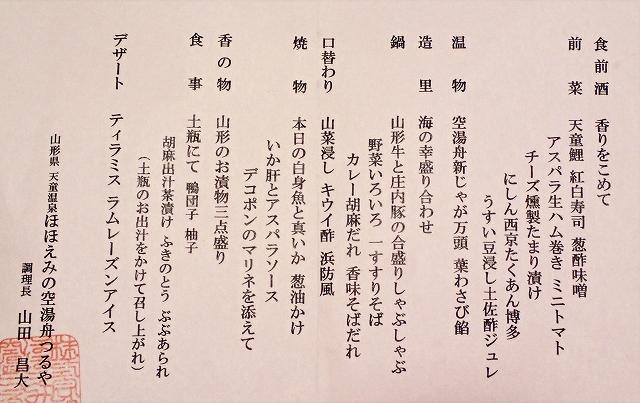 食前酒 香りをこめて
前菜 天童鯉 紅白寿司 葱酢味噌
アスパラ生ハム巻き ミニトマト
チーズ燻製たまり漬け
にしん西京たくあん博多
うすい豆浸し土佐酢ジュレ
温物 空湯舟新じゃが万頭 葉わさび餡
造里 海の幸盛り合わせ
鍋 山形牛と庄内豚の合盛りしゃぶしゃぶ
野菜いろいろ 一すすりそば
カレー胡麻だれ 香味そばだれ
口替わり 山菜浸し キウイ酢 浜防風
焼物 本日の白身魚と真いか 葱油かけ
いか肝とアスパラソース
デコポンのマリネを添えて
香の物 山形のお漬物三点盛り
食事 土瓶にて 鴨団子 柚子
胡麻出汁茶漬け ふきのとう ぶぶあられ
（土瓶のお出汁をかけて召し上がれ）
デザート ティラミス ラムレーズンアイス
山形県 天童温泉 ほほえみの空湯舟つるや
調理長 山田 昌大